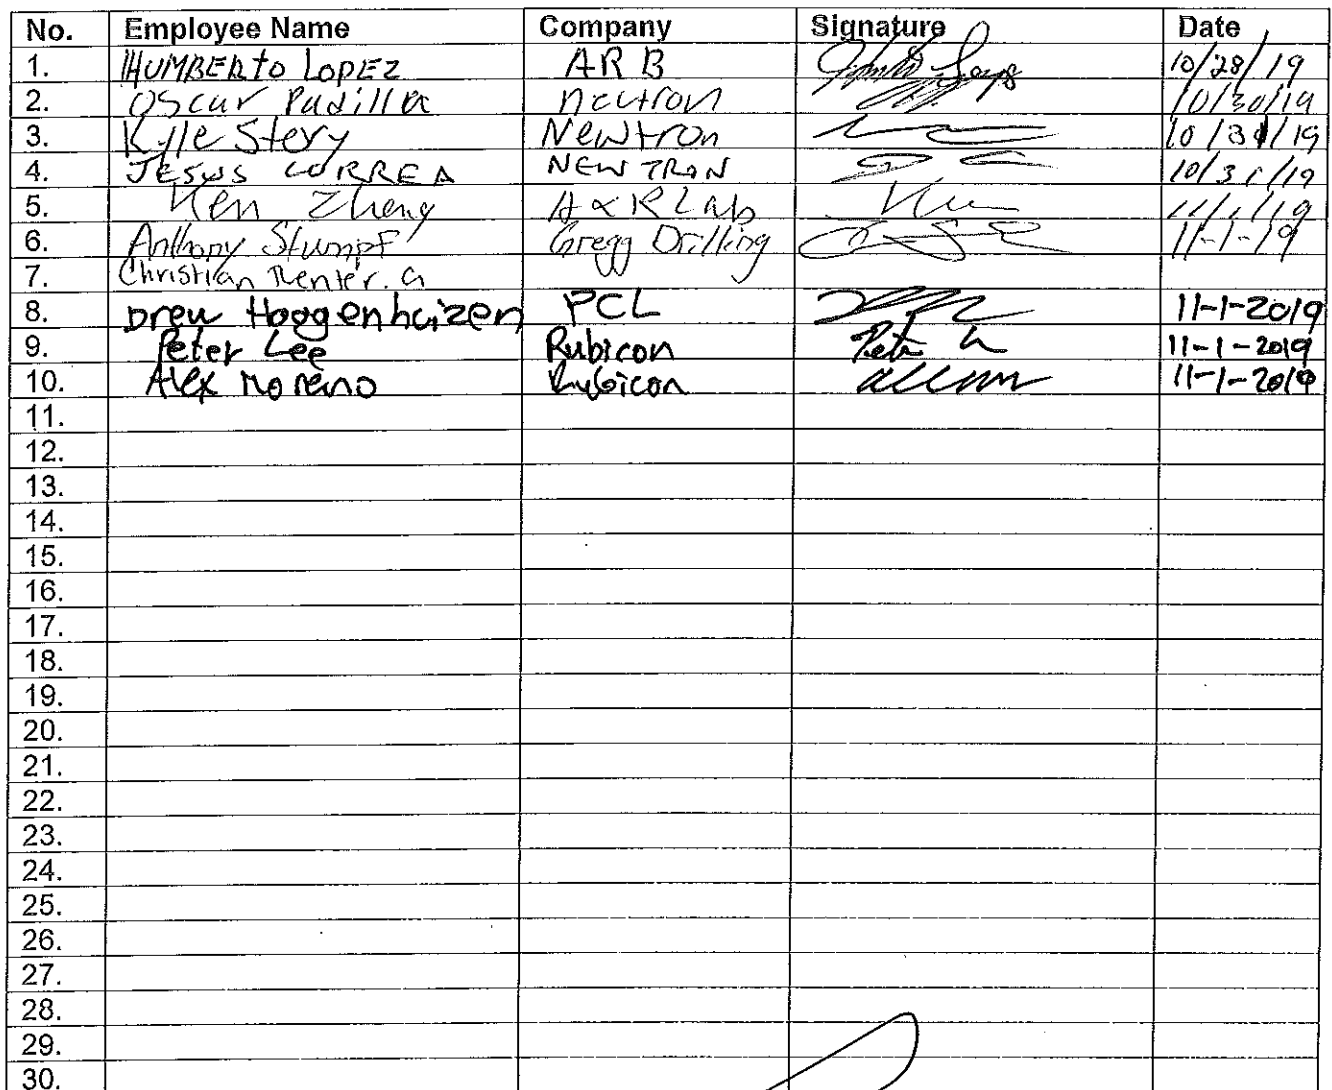 No. Employee Name Company Signature Date
1. HUMBERTO LOPEZ ARB 10/28/19
2. Oscar Padilla neutron 10/30/19
3. Kyle Story Newtron 10/30/19
4. JESUS CORREA NEWTRON 10/31/19
5. Ken Zheng A&R Lab 11/1/19
6. Anthony Stumpf Gregg Drilling 11-1-19
7. Christian
8. Drew Hoggenhuizen PCL 11-1-2019
9. Peter Lee Rubicon 11-1-2019
10. Alex Moreno Rubicon 11-1-2019
11.
12.
13.
14.
15.
16.
17.
18.
19.
20.
21.
22.
23.
24.
25.
26.
27.
28.
29.
30.